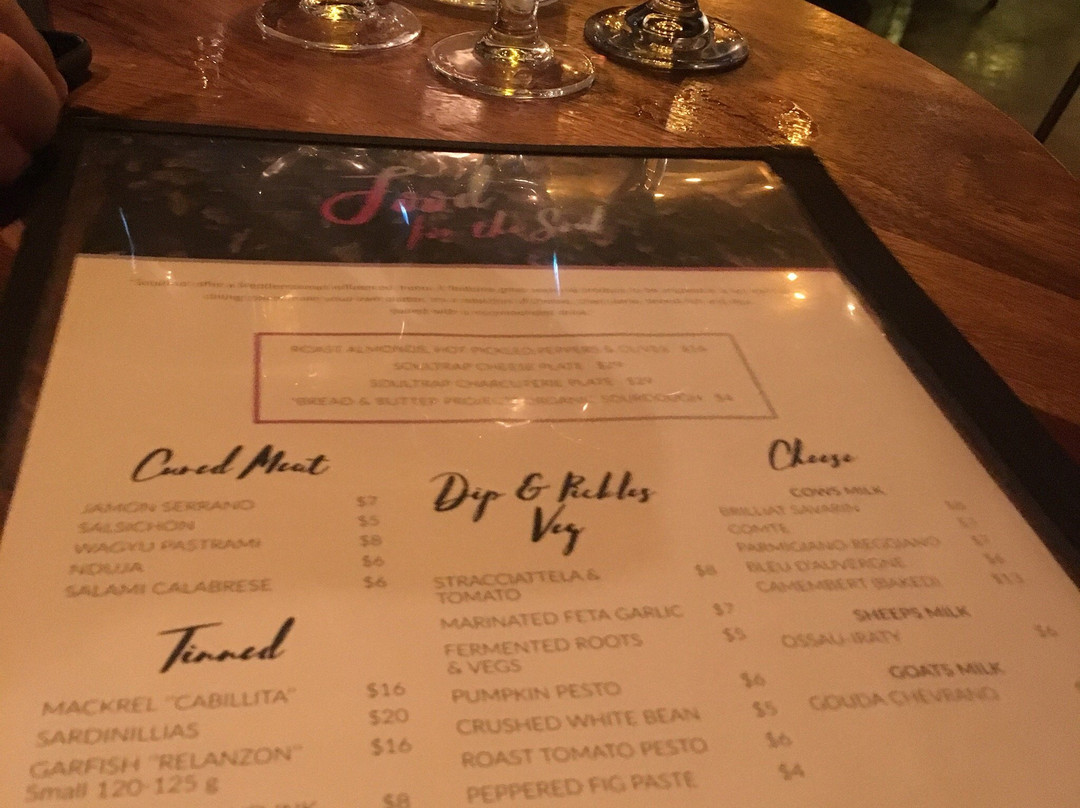 Food
for the Soul
ROAST ALMONDS, HOT PICKLED PEPPERS & OLIVES
SOULTRAP CHEESE PLATE $29
SOULTRAP CHARCUTERIE PLATE $29
"BREAD & BUTTER PROJECT" ORGANIC SOURDOUGH $4
Cured Meat
JAMON SERRANO $7
SALSICHON $5
WAGYU PASTRAMI $8
NDUJA $6
SALAMI CALABRESE $6
Tinned
MACKREL "CABILLITA" $16
SARDINILLIAS $20
GARFISH "RELANZON" $16
Small 120-125 g
$8
Dip & Pickles
Veg
STRACCIATTELA & $8
TOMATO
MARINATED FETA GARLIC $7
FERMENTED ROOTS $5
& VEGS
PUMPKIN PESTO $6
CRUSHED WHITE BEAN $5
ROAST TOMATO PESTO $6
PEPPERED FIG PASTE $4
Cheese
COWS MILK
BRILLIAT SAVARIN
COMTE $7
PARMIGIANO REGGIANO $7
BLEU D'AUVERGNE $6
CAMEMBERT (BAKED) $13
SHEEPS MILK
OSSAU-IRATY $6
GOATS MILK
GOUDA CHEVRANO